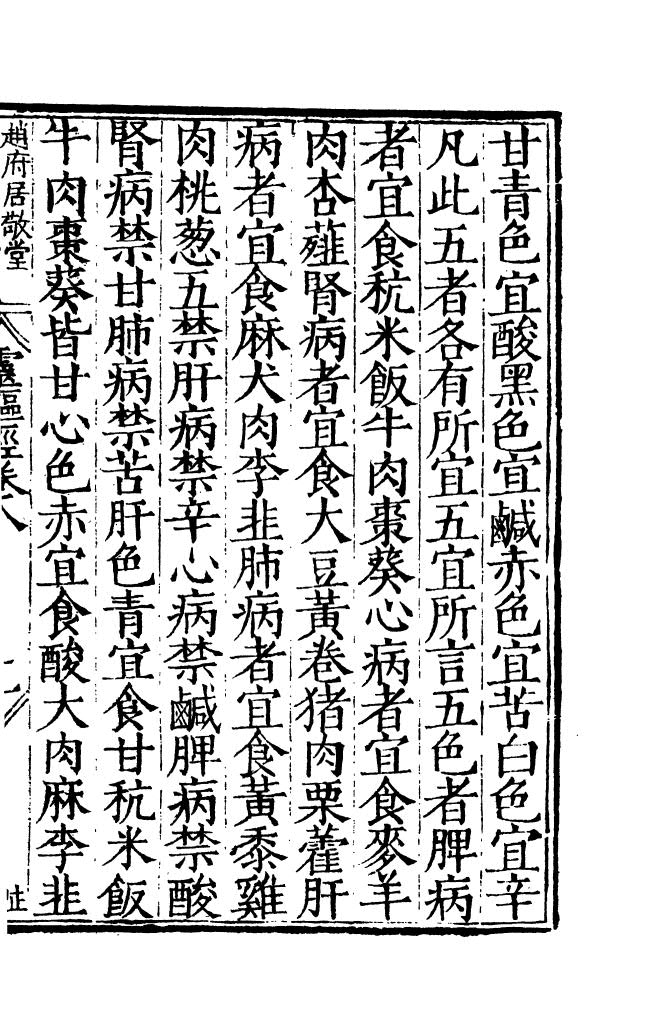 甘青色宜酸黑色宜鹹赤色宜苦白色宜辛
凡此五者各有所宜五宜所言五色者脾病
者宜食秔米飯牛肉棗葵心病者宜食麥羊
肉杏薤腎病者宜食大豆黃卷猪肉栗藿肝
病者宜食麻犬肉李韭肺病者宜食黃黍雞
肉桃葱五禁肝病禁辛心病禁鹹脾病禁酸
腎病禁甘肺病禁苦肝色青宜食甘秔米飯
牛肉棗葵皆甘心色赤宜食酸大肉麻李韭
趙府居敬堂
靈樞經卷八